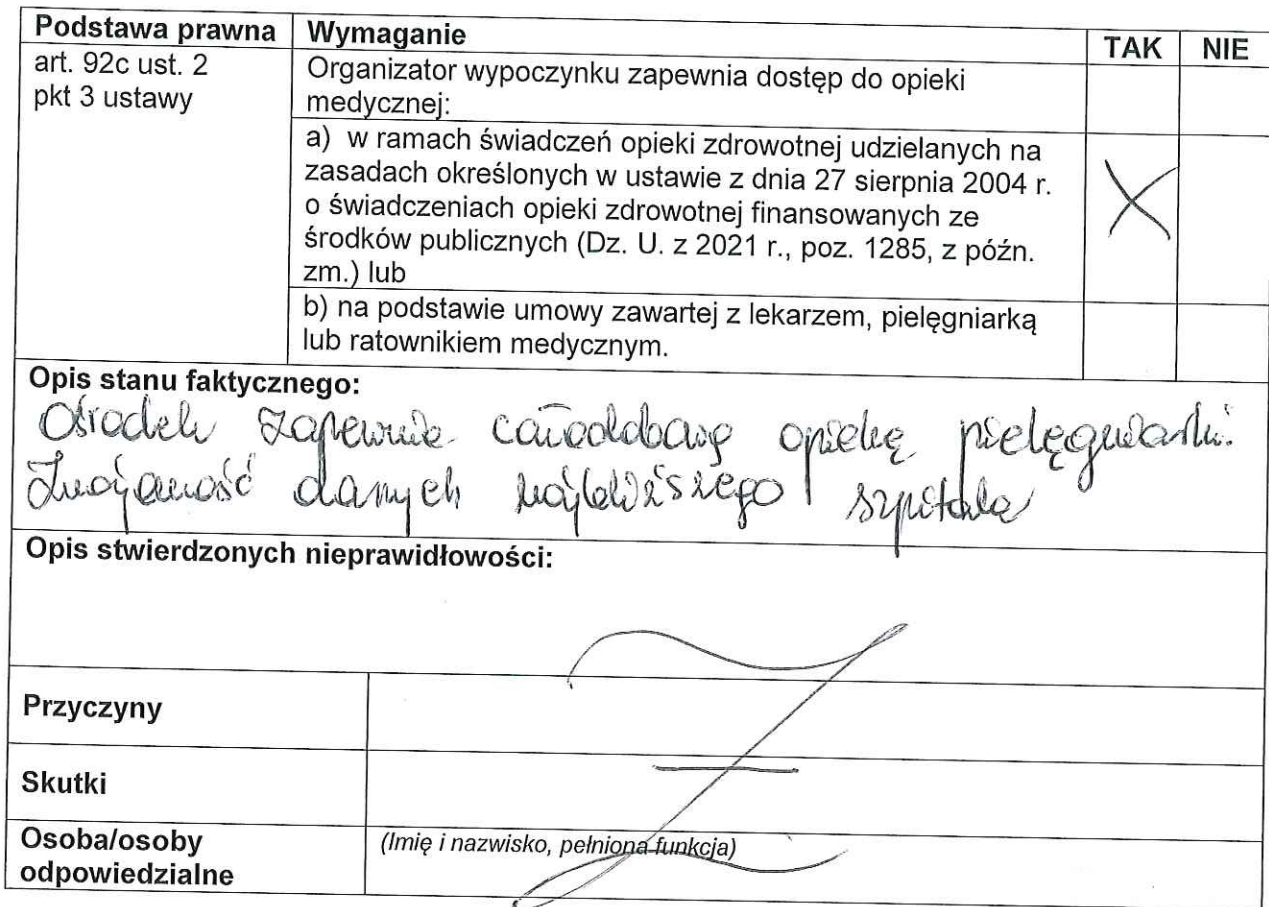 Podstawa prawna Wymaganie TAK NIE
art. 92c ust. 2
pkt 3 ustawy
Organizator wypoczynku zapewnia dostęp do opieki
medycznej:
a) w ramach świadczeń opieki zdrowotnej udzielanych na
zasadach określonych w ustawie z dnia 27 sierpnia 2004 r.
o świadczeniach opieki zdrowotnej finansowanych ze
środków publicznych (Dz. U. z 2021 r., poz. 1285, z późn.
zm.) lub
b) na podstawie umowy zawartej z lekarzem, pielęgniarką
lub ratownikiem medycznym.
Opis stanu faktycznego:
Ośrodek zapewnia całodobową opiekę pielęgniarki.
Znajomość danych najbliższego szpitala
Opis stwierdzonych nieprawidłowości:
Przyczyny
Skutki
Osoba/osoby
odpowiedzialne
(Imię i nazwisko, pełniona funkcja)